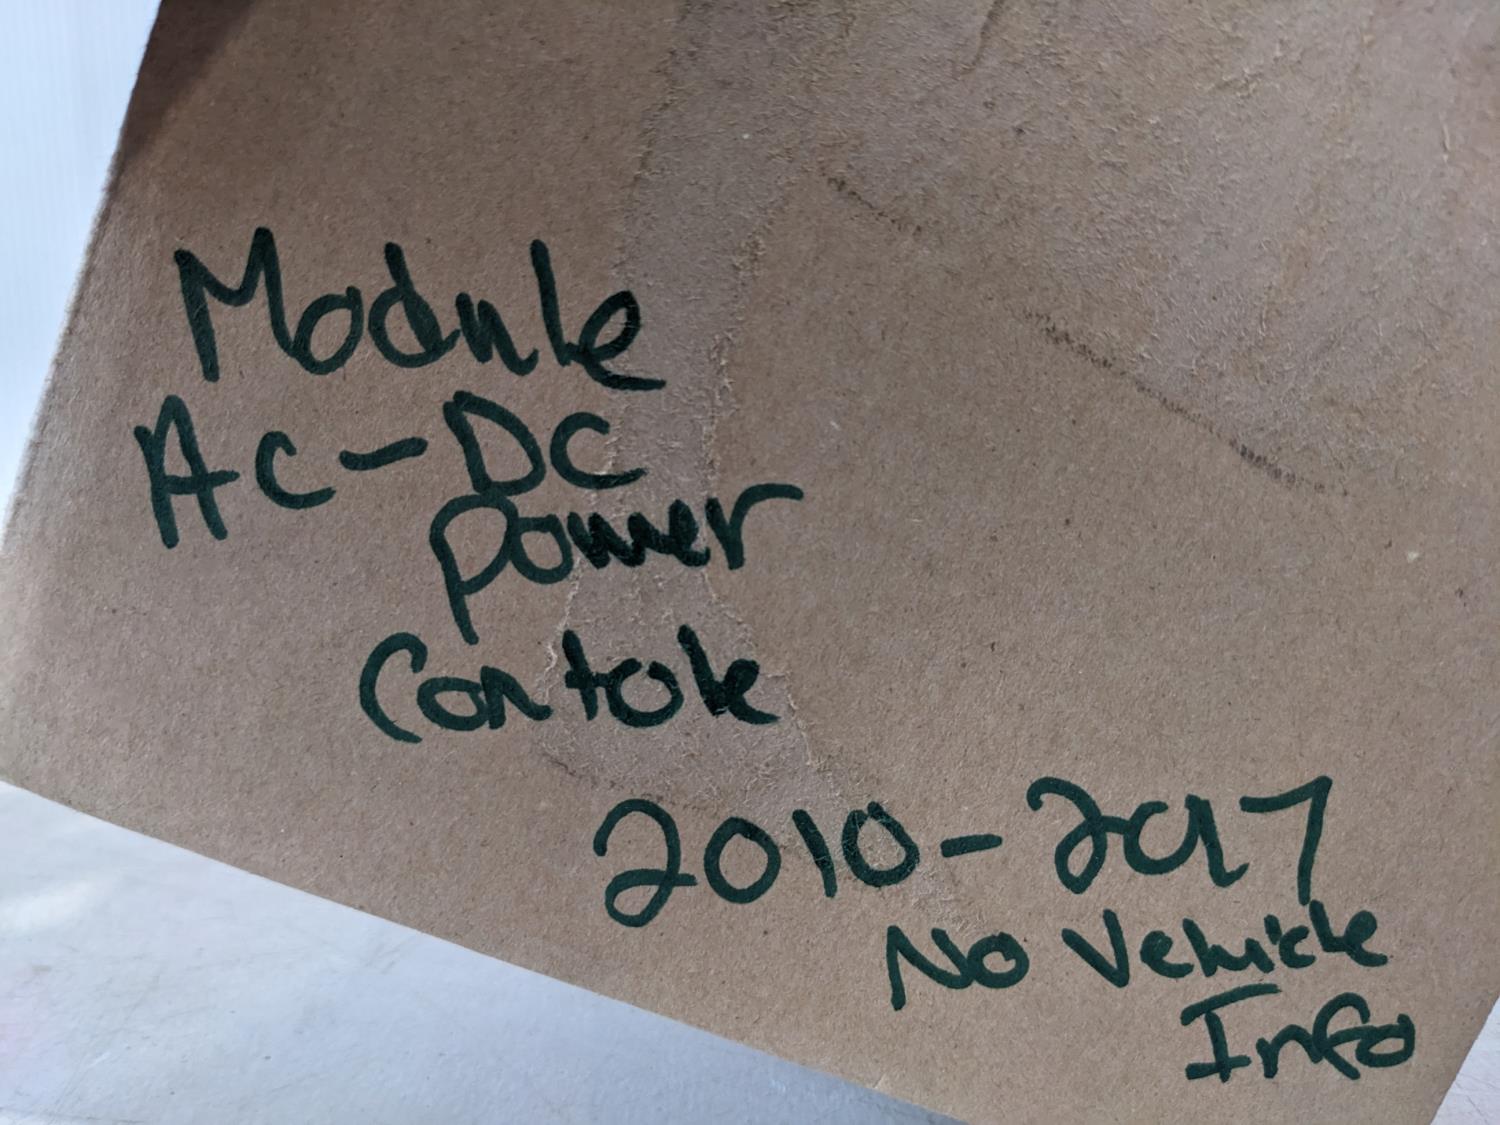 Module
AC-DC
power
Contole
2010-2017
No Vehicle
Info